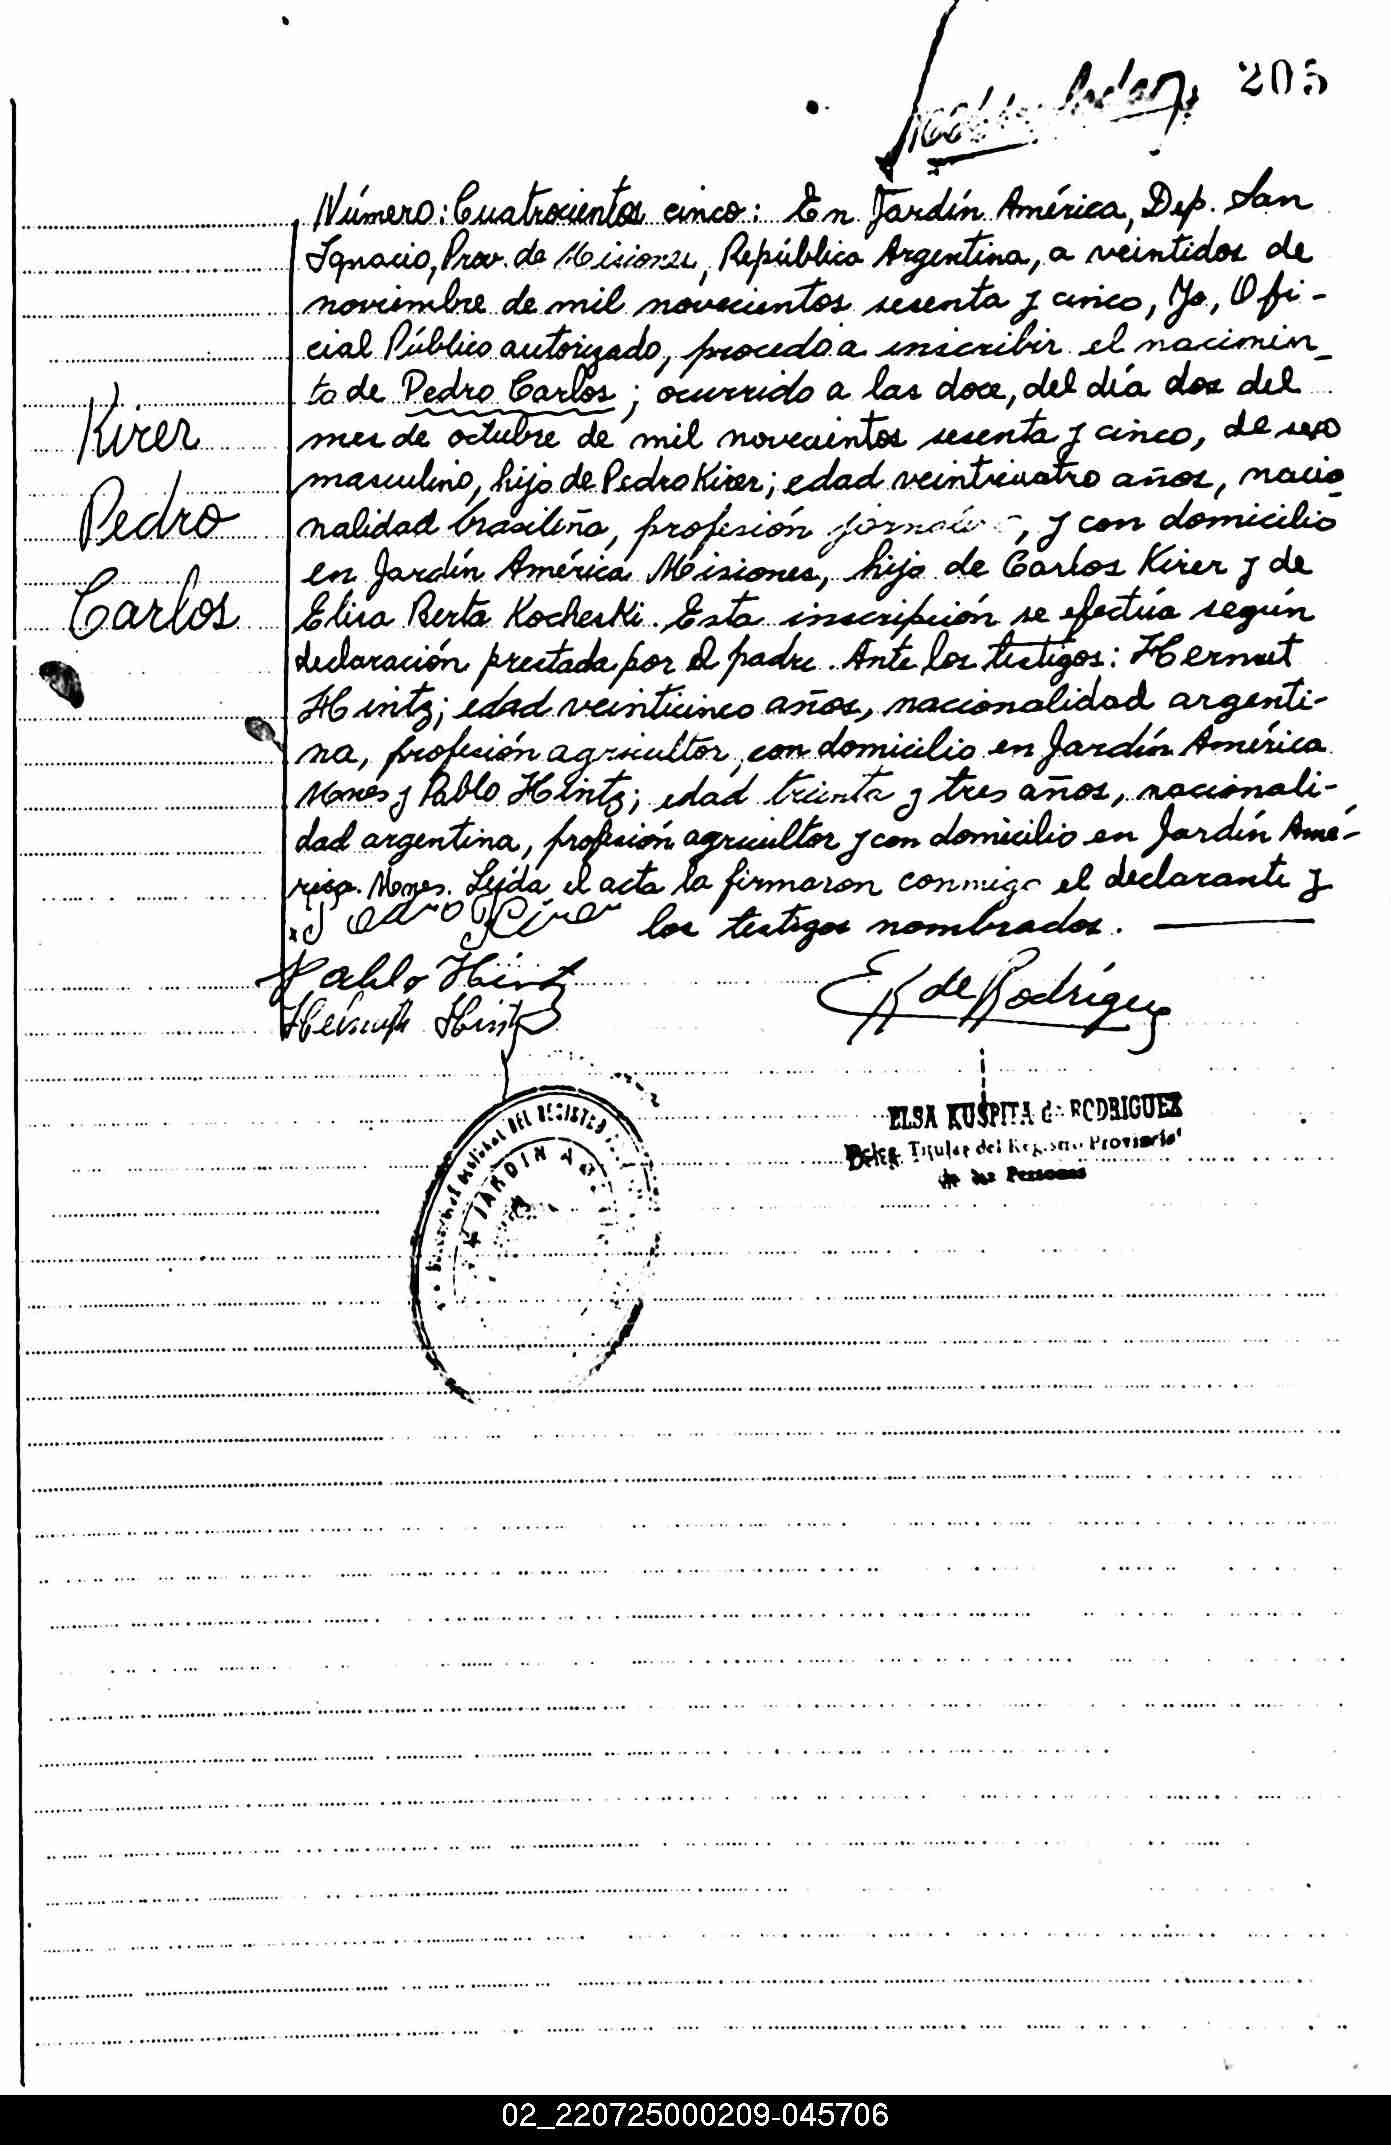 205
Número: Cuatrocientos cinco: En Jardín América, Dep. San
Ignacio, Prov. de Misiones, República Argentina, a veintidos de
noviembre de mil novecientos sesenta y cinco, Yo, Ofi-
cial Público autorizado, procedo a inscribir el nacimien_
to de Pedro Carlos; ocurrido a las doce, del día dos del
mes de octubre de mil novecientos sesenta y cinco, de sexo
masculino, hijo de Pedro Kirer; edad veinticuatro años, nacio
nalidad brasileña, profesión jornalero, y con domicilio
en Jardín América Misiones, hijo de Carlos Kirer y de
Elisa Berta Kocheski. Esta inscripción se efectúa según
declaración prestada por el padre. Ante los testigos: Hernut
Hintz; edad veinticinco años, nacionalidad argenti-
na, profesión agricultor, con domicilio en Jardín América
Mnes y Pablo Hintz; edad treinta y tres años, nacionali-
dad argentina, profesión agricultor y con domicilio en Jardín Amé-
rica. Mnes. Leída el acta la firmaron conmigo el declarante y
los testigos nombrados.
Kirer
Pedro
Carlos
Pedro Kirer
Pablo Hintz
Hintz
E K de Rodríguez
ELSA KUSPITA de RODRIGUEZ
Deleg. Titular del Registro Provincial
de las Personas
DEL REGISTRO
JARDIN
02_220725000209-045706